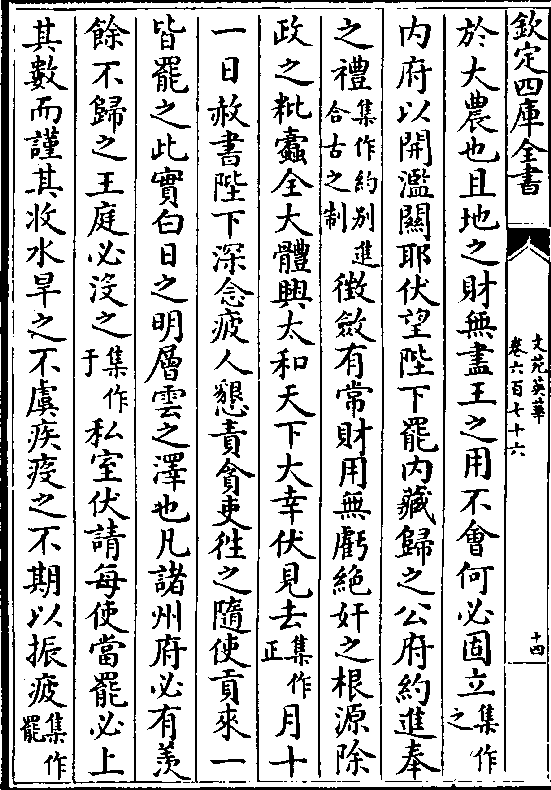 欽定四庫全書
文苑英華
卷六百七十六
十四
於大農也且地之財無盡王之用不會何必固立集作之
内府以開濫闗耶伏望陛下罷内藏歸之公府約進奉
之禮集作約别進合古之制徴斂有常財用無虧絶奸之根源除
政之粃蠧全大體興太和天下大幸伏見去集作正月十
一日赦書陛下深念疲人懇責貪吏徃之隨使貢來一
皆罷之此實白日之明層雲之澤也凡諸州府必有羡
餘不歸之王庭必没之集作于私室伏請每使當罷必上
其數而謹其收水旱之不虞疾疫之不期以振疲集作罷